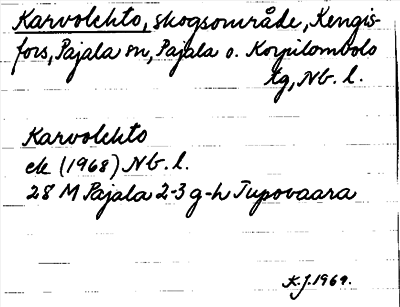 Karvolehto, skogsområde, Kengis-
fors, Pajala sn, Pajala o. Korpilombolo
tg, Nb. l.
Karvolehto
ek (1968) Nb. l.
28 M Pajala 2-3 g-h Tupovaara
K.J. 1969.